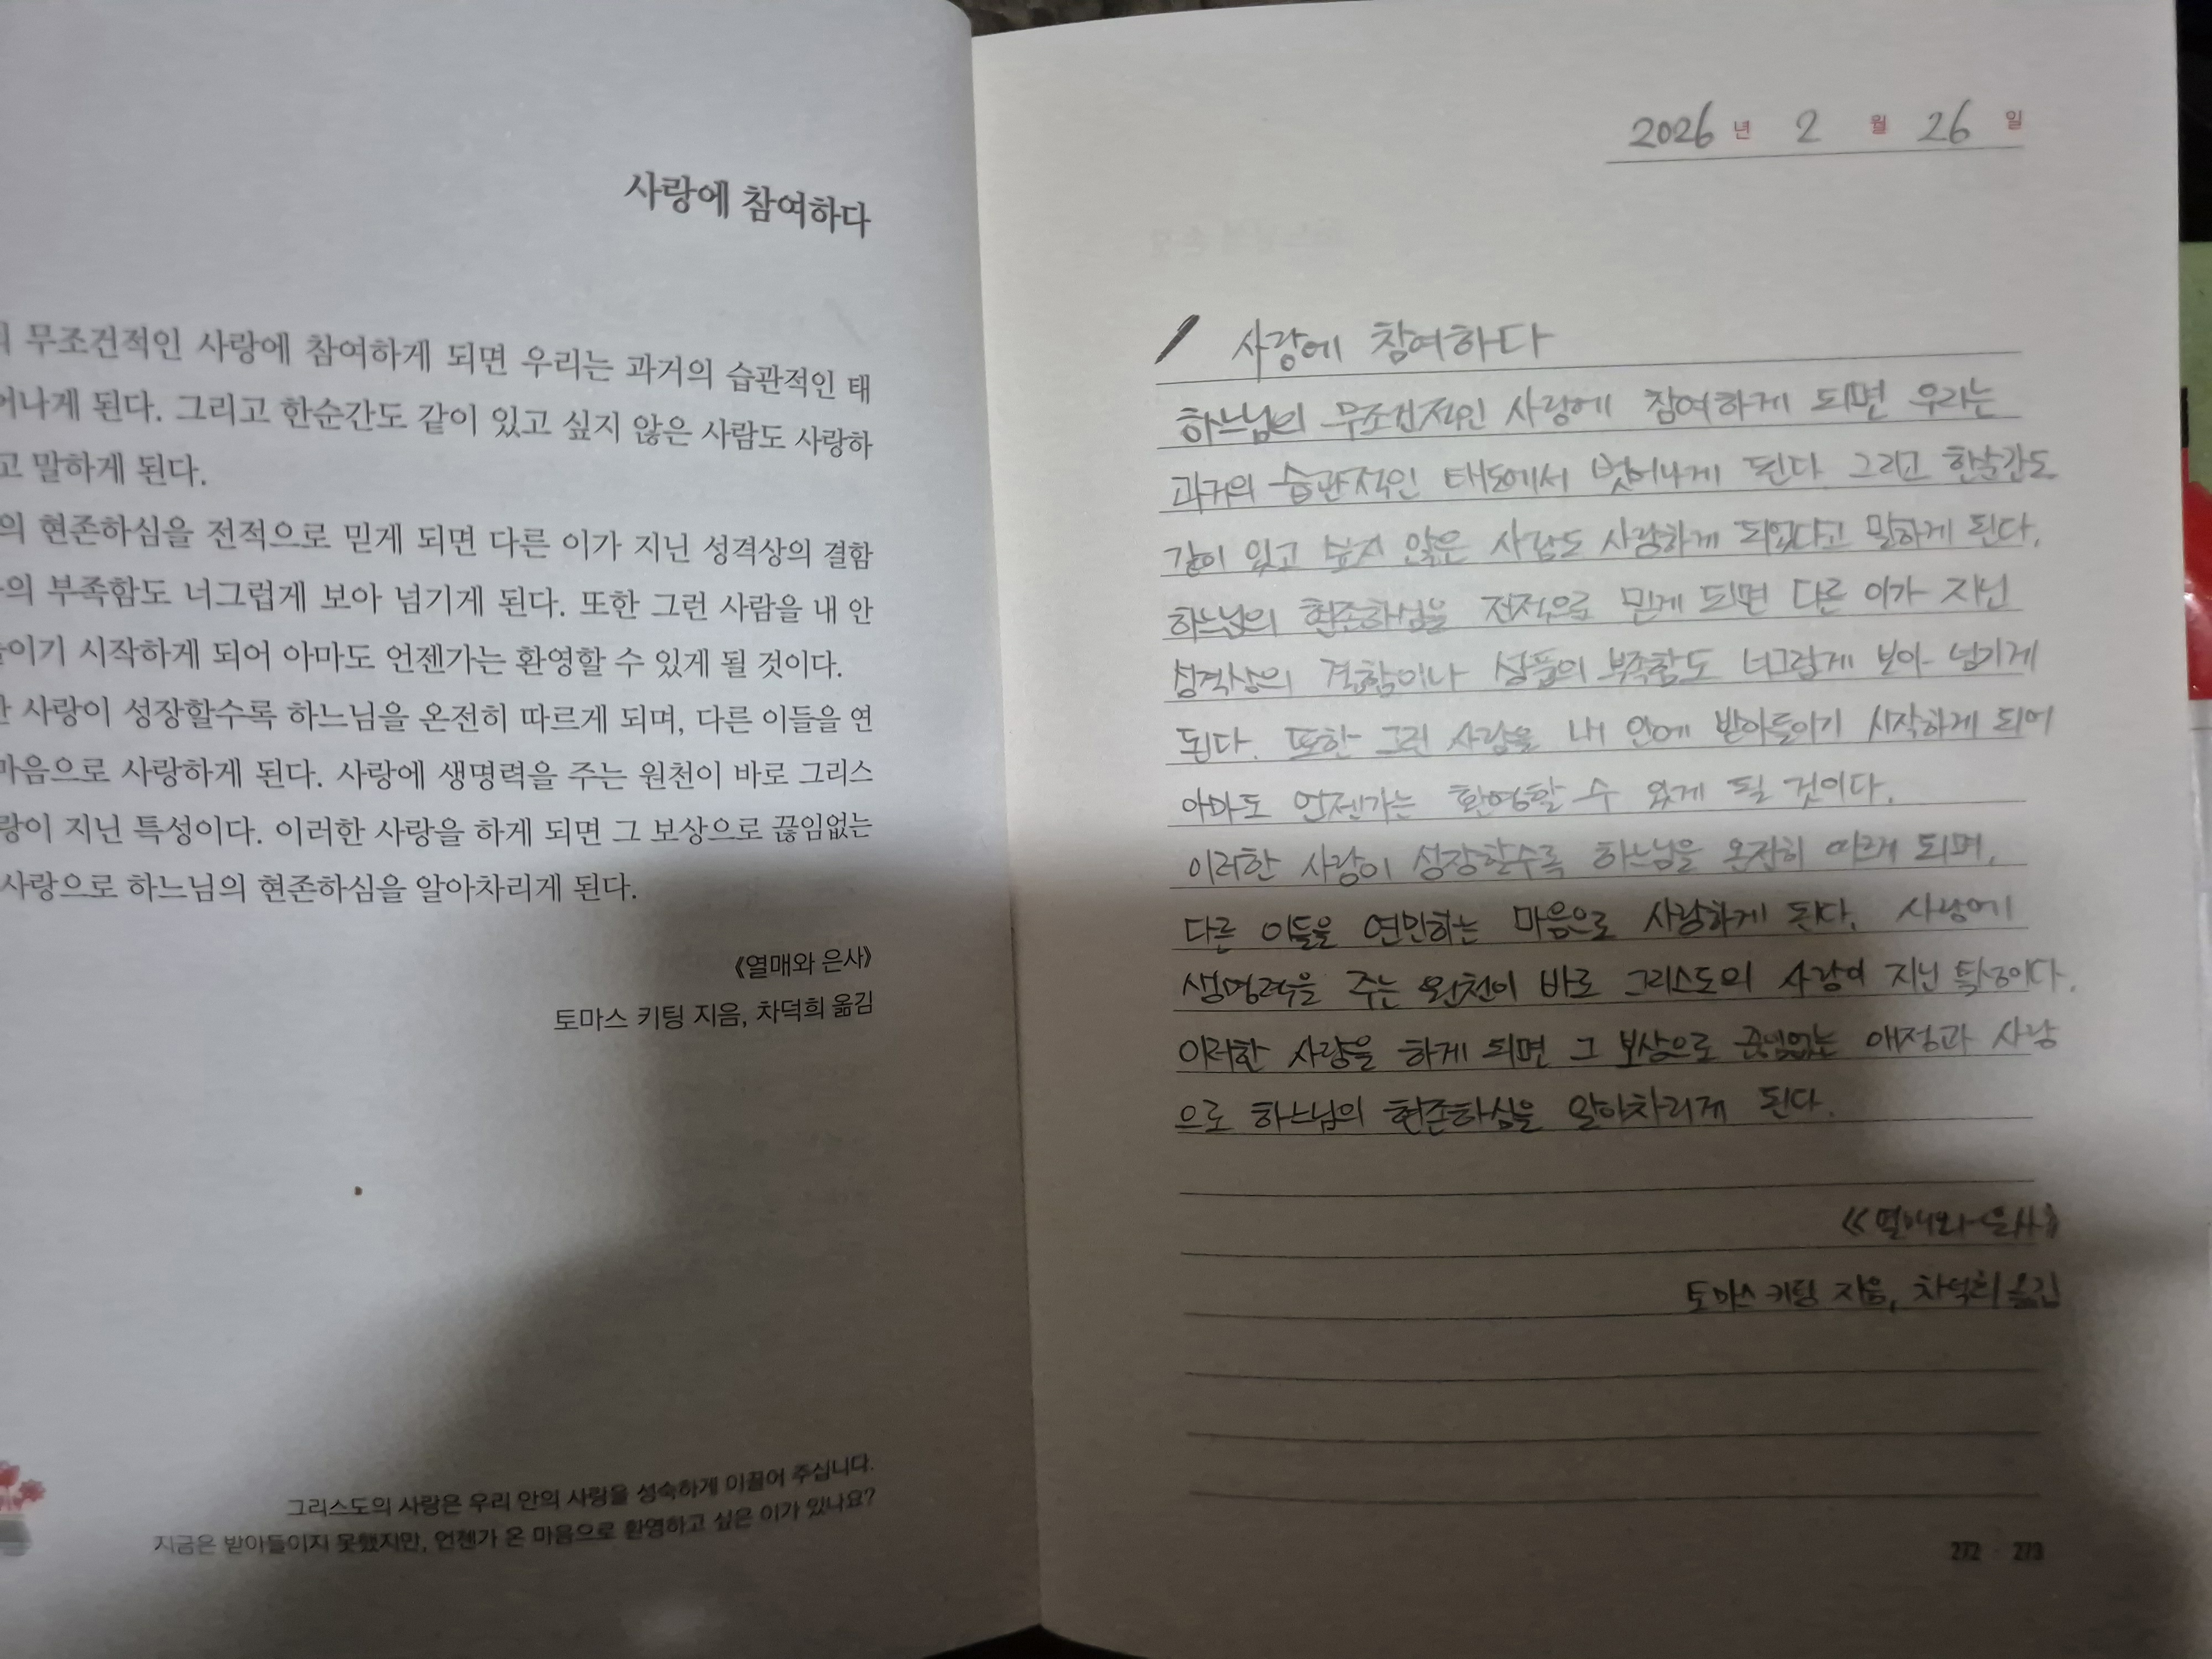 사랑에 참여하다
무조건적인 사랑에 참여하게 되면 우리는 과거의 습관적인 태
어나게 된다. 그리고 한순간도 같이 있고 싶지 않은 사람도 사랑하
고 말하게 된다.
의 현존하심을 전적으로 믿게 되면 다른 이가 지닌 성격상의 결함
의 부족함도 너그럽게 보아 넘기게 된다. 또한 그런 사람을 내 안
들이기 시작하게 되어 아마도 언젠가는 환영할 수 있게 될 것이다.
한 사랑이 성장할수록 하느님을 온전히 따르게 되며, 다른 이들을 연
마음으로 사랑하게 된다. 사랑에 생명력을 주는 원천이 바로 그리스
랑이 지닌 특성이다. 이러한 사랑을 하게 되면 그 보상으로 끊임없는
사랑으로 하느님의 현존하심을 알아차리게 된다.
《열매와 은사》
토마스 키팅 지음, 차덕희 옮김
그리스도의 사랑은 우리 안의 사랑을 성숙하게 이끌어 주십니다.
지금은 받아들이지 못했지만, 언젠가 온 마음으로 환영하고 싶은 이가 있나요?
2026 년 2 월 26 일
사랑에 참여하다
하느님의 무조건적인 사랑에 참여하게 되면 우리는
과거의 습관적인 태도에서 벗어나게 된다. 그리고 한순간도
같이 있고 싶지 않은 사람도 사랑하게 되었다고 말하게 된다.
하느님의 현존하심을 전적으로 믿게 되면 다른 이가 지닌
성격상의 결함이나 성품의 부족함도 너그럽게 보아 넘기게
된다. 또한 그런 사람을 내 안에 받아들이기 시작하게 되어
아마도 언젠가는 환영할 수 있게 될 것이다.
이러한 사랑이 성장할수록 하느님을 온전히 따르게 되며,
다른 이들을 연민하는 마음으로 사랑하게 된다. 사랑에
생명력을 주는 원천이 바로 그리스도의 사랑이 지닌 특성이다.
이러한 사랑을 하게 되면 그 보상으로 끊임없는 애정과 사랑
으로 하느님의 현존하심을 알아차리게 된다.
《열매와 은사》
토마스 키팅 지음, 차덕희 옮김
272 273